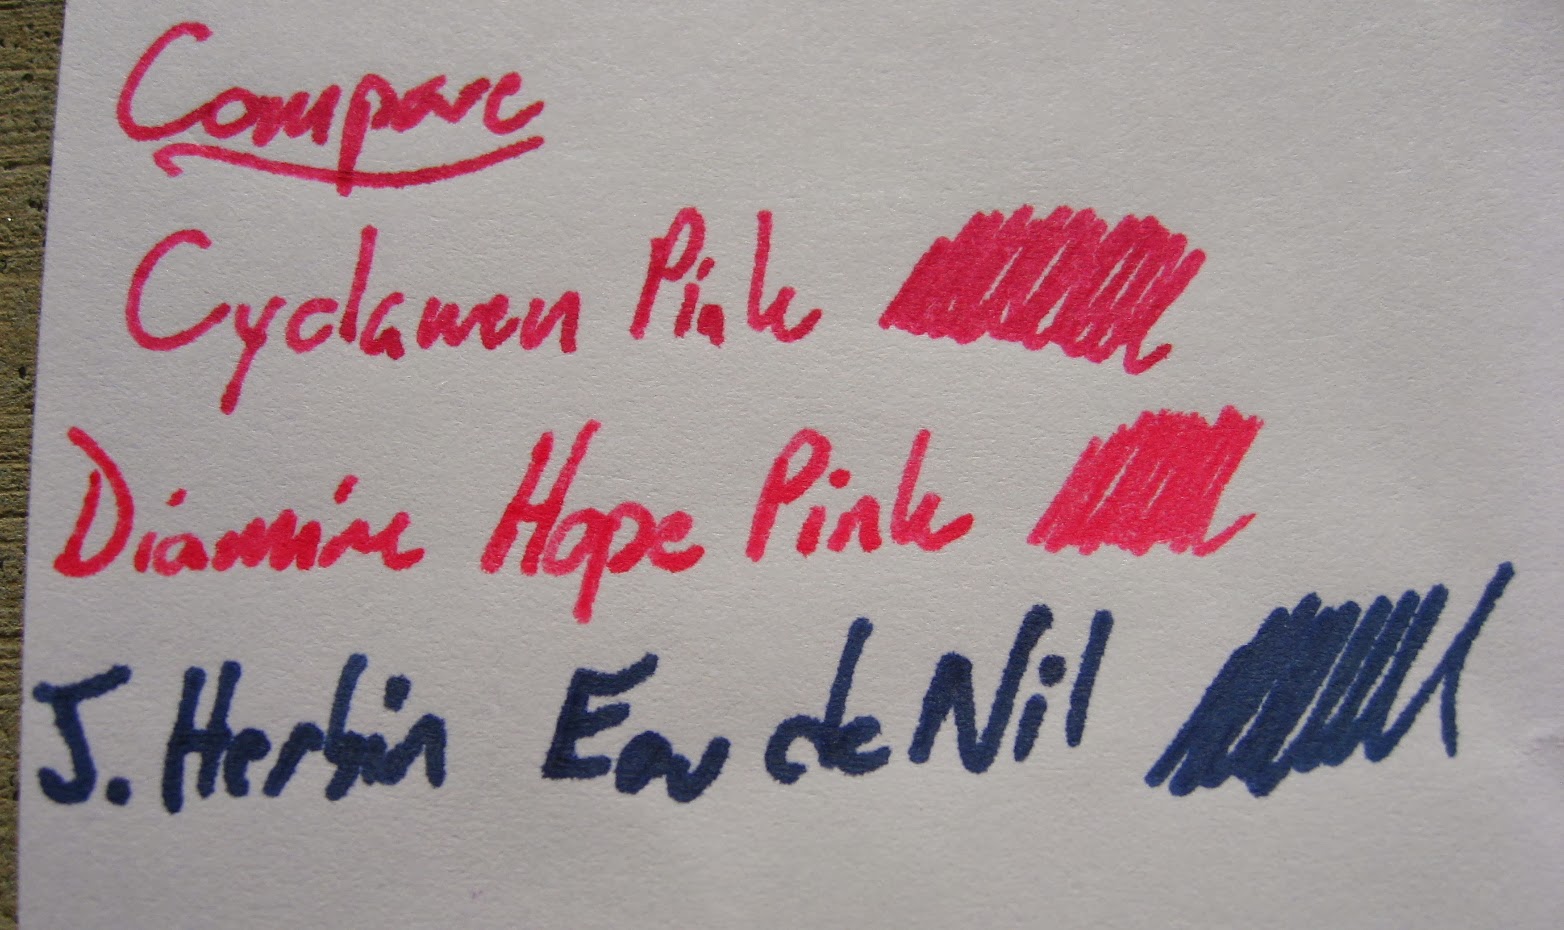 Compare
Cyclamen Pink
Diamine Hope Pink
J. Herbin Eau de Nil